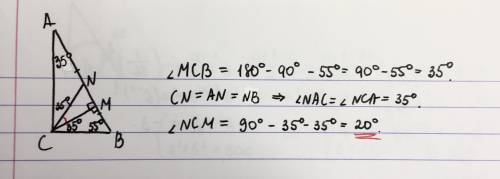 A
35°
N
M
35°
35°
55°
C
B
∠MCB = 180° - 90° - 55° = 90° - 55° = 35°.
CN = AN = NB ⇒ ∠NAC = ∠NCA = 35°.
∠NCM = 90° - 35° - 35° = 20°.